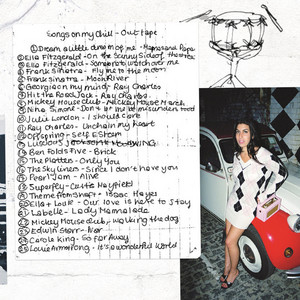 Songs on my Chill-Out Tape
① Dream a little dream of me - Mamas and Papas
② Ella Fitzgerald - On the Sunny side of the street
③ Ella Fitzgerald - Someone to watch over me
④ Frank Sinatra - Fly me to the moon
⑤ Frank Sinatra - Moon River
⑥ Georgia on my mind - Ray Charles
⑦ Hit the Road Jack - Ray Charles
⑧ Mickey Mouse Club - Mickey Mouse March
⑨ Nina Simone - Don't let me be misunderstood
⑩ Julie London - I should care
⑪ Ray Charles - Unchain my heart
⑫ Offspring - Self Esteem
⑬ Luscious Jackson
⑭ Ben Folds Five - Brick
⑮ The Platters - Only You
⑯ The Skyliners - Since I don't have you
⑰ Pearl Jam - Alive
⑱ Superfly - Curtis Mayfield
⑲ Theme from Shaft - Isaac Hayes
⑳ Ella + Louis - Our love is here to stay
㉑ Labelle - Lady Marmalade
㉒ Mickey Mouse Club - Walking the dog
㉓ Edwin Starr - War
㉔ Carole King - So Far Away
㉕ Louis Armstrong - It's a wonderful World